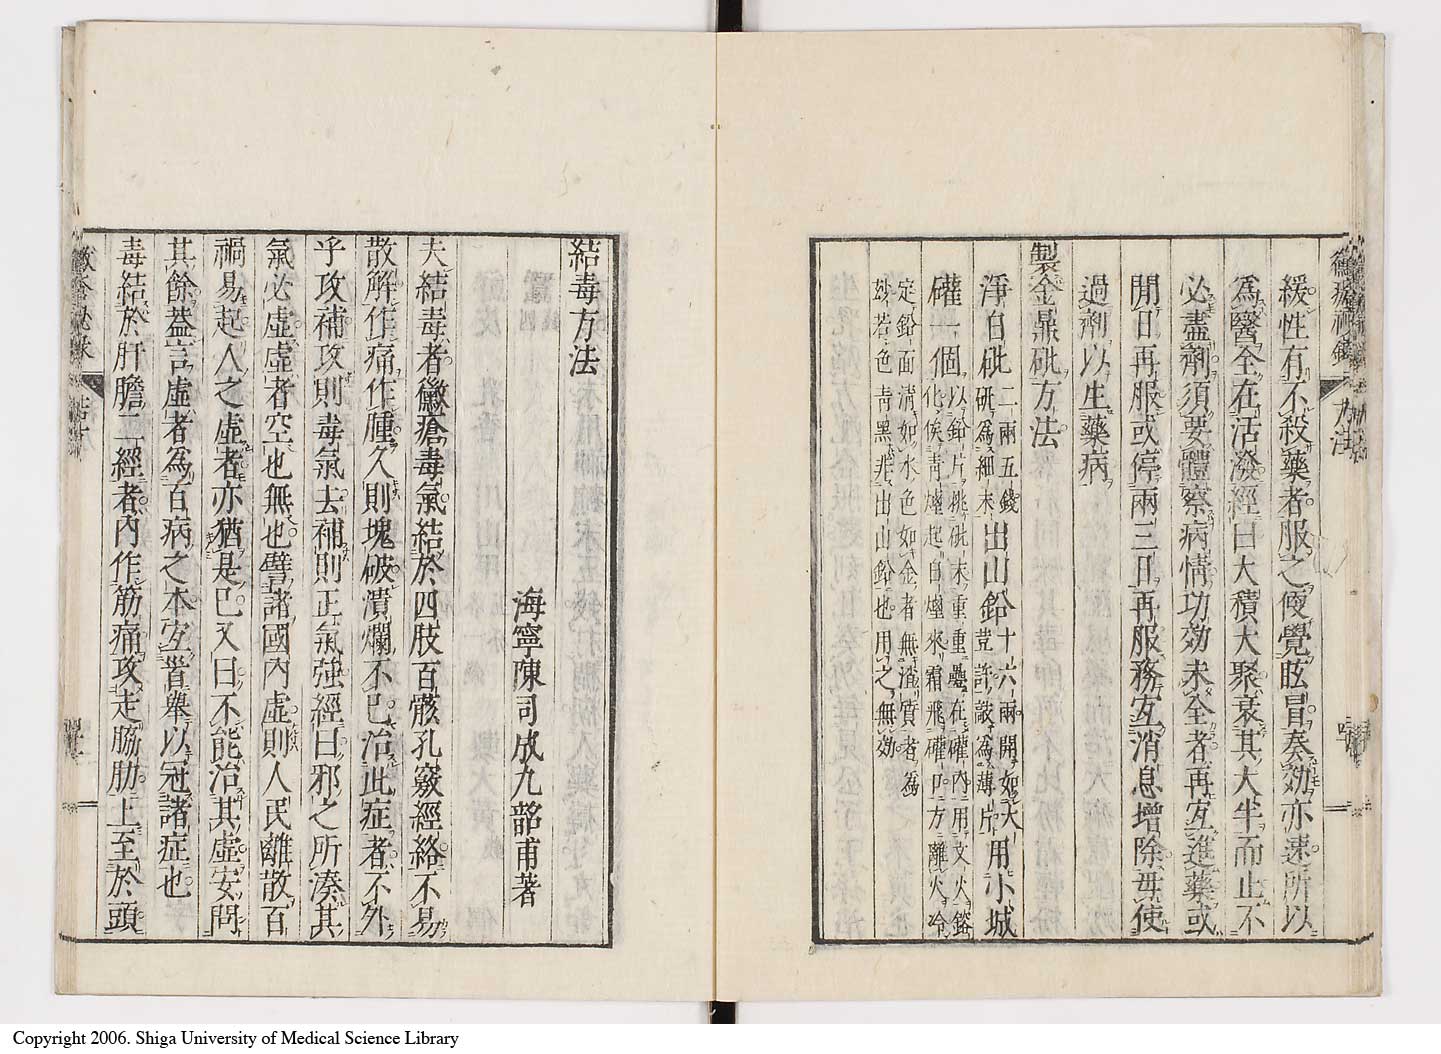 緩性有不殺藥者服之便覺眩冒奏効亦速所以
為醫全在活潑經曰大積大聚衰其大半而止不
必盡劑須要體察病情功効未全者再宐進藥或
間日再服或停兩三日再服務宐消息增除毋使
過劑以生藥病
製金鼎砒方法
淨白砒二兩五錢研為細末出山鉛十六兩開如大荳許敲為薄片用小城
礶一個以鉛片桃砒末重重疊在礶內用文火鎔化俟靑煙起白煙來霜飛礶口方離火冷
定鉛面消如水色如金者無渣質者為妙若色靑黑非出山鉛也用之無効
九法
結毒方法
海寧陳司成九韶甫著
夫結毒者黴瘡毒氣結於四肢百骸孔竅經絡不易
散解作痛作腫久則塊破潰爛不已治此症者不外
乎攻補攻則毒氣去補則正氣強經曰邪之所湊其
氣必虛虛者空也無也譬諸國內虛則人民離散百
禍易起人之虛者亦猶是已又曰不能治其虛安問
其餘葢言虛者為百病之本宐首舉以冠諸症也
毒結於肝膽二經者內作筋痛攻走脇肋上至於頭
Copyright 2006. Shiga University of Medical Science Library